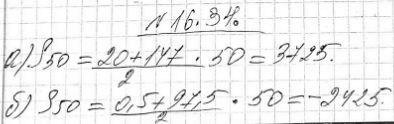 № 16.34.
а) S50 = 20+147/2 · 50 = 3725.
б) S50 = 0,5+97,5/2 · 50 = -2425.